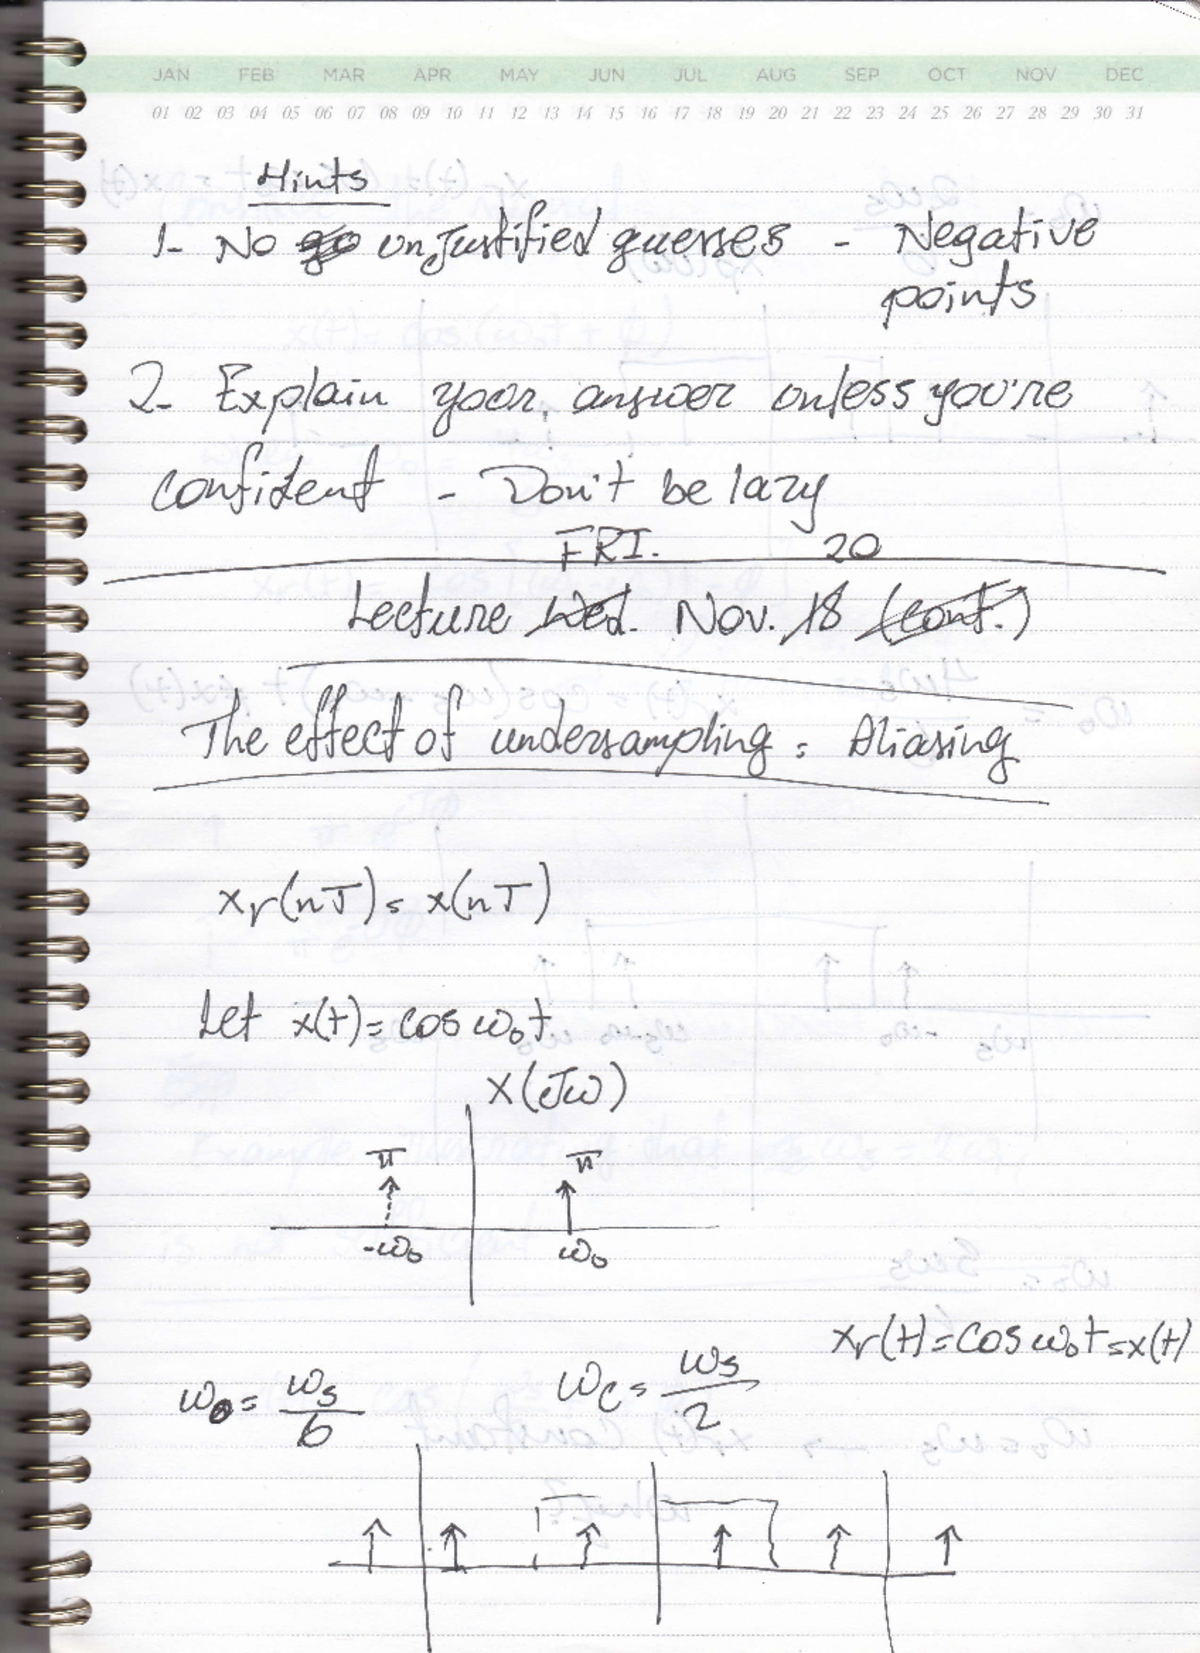 JAN FEB MAR APR MAY JUN JUL AUG SEP OCT NOV DEC
01 02 03 04 05 06 07 08 09 10 11 12 13 14 15 16 17 18 19 20 21 22 23 24 25 26 27 28 29 30 31
Hints
1- No go unjustified guesses - Negative
points
2- Explain your answer unless you're
confident - Don't be lazy
FRI. 20
Lecture Wed. Nov. 18 (cont.)
The effect of undersampling : Aliasing
xr(nT) = x(nT)
Let x(t) = cos ω₀t
X(jω)
π π
-ω₀ ω₀
xr(t) = cos ω₀t = x(t)
ω₀ = ωs/6 ωc = ωs/2